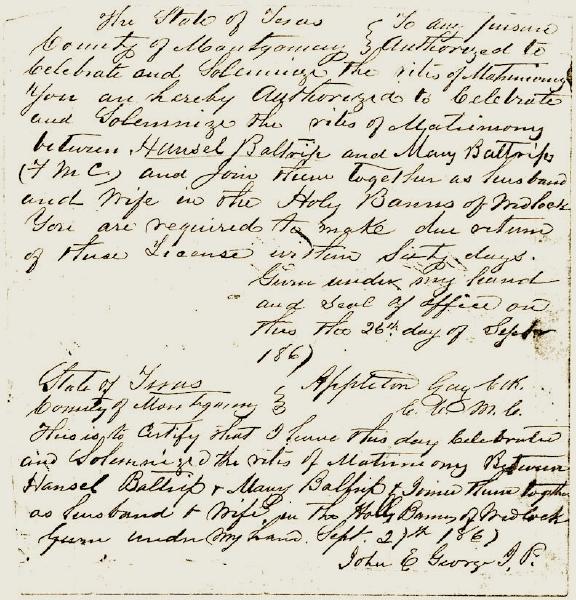 The State of Texas } To any person
County of Montgomery } Authorized to
Celebrate and Solemnize the rites of Matrimony
You are hereby Authorized to Celebrate
and Solemnize the rites of Matrimony
between Hansel Baltrip and Mary Baltrip
(F M C) and Join them together as husband
and Wife in the Holy Banns of Wedlock
You are required to make due return
of these License within Sixty days.
Given under my hand
and Seal of Office on
this the 26th day of Septr
1867
State of Texas } Appleton Gay Clk.
County of Montgomery } C. C. M. C.
This is to Certify that I have this day Celebrated
and Solemnized the rites of Matrimony Between
Hansel Baltrip & Mary Baltrip & Joined them together
as husband & Wife in the Holly Banns of Wedlock
Given under my hand Sept. 27th 1867
John E George J. P.